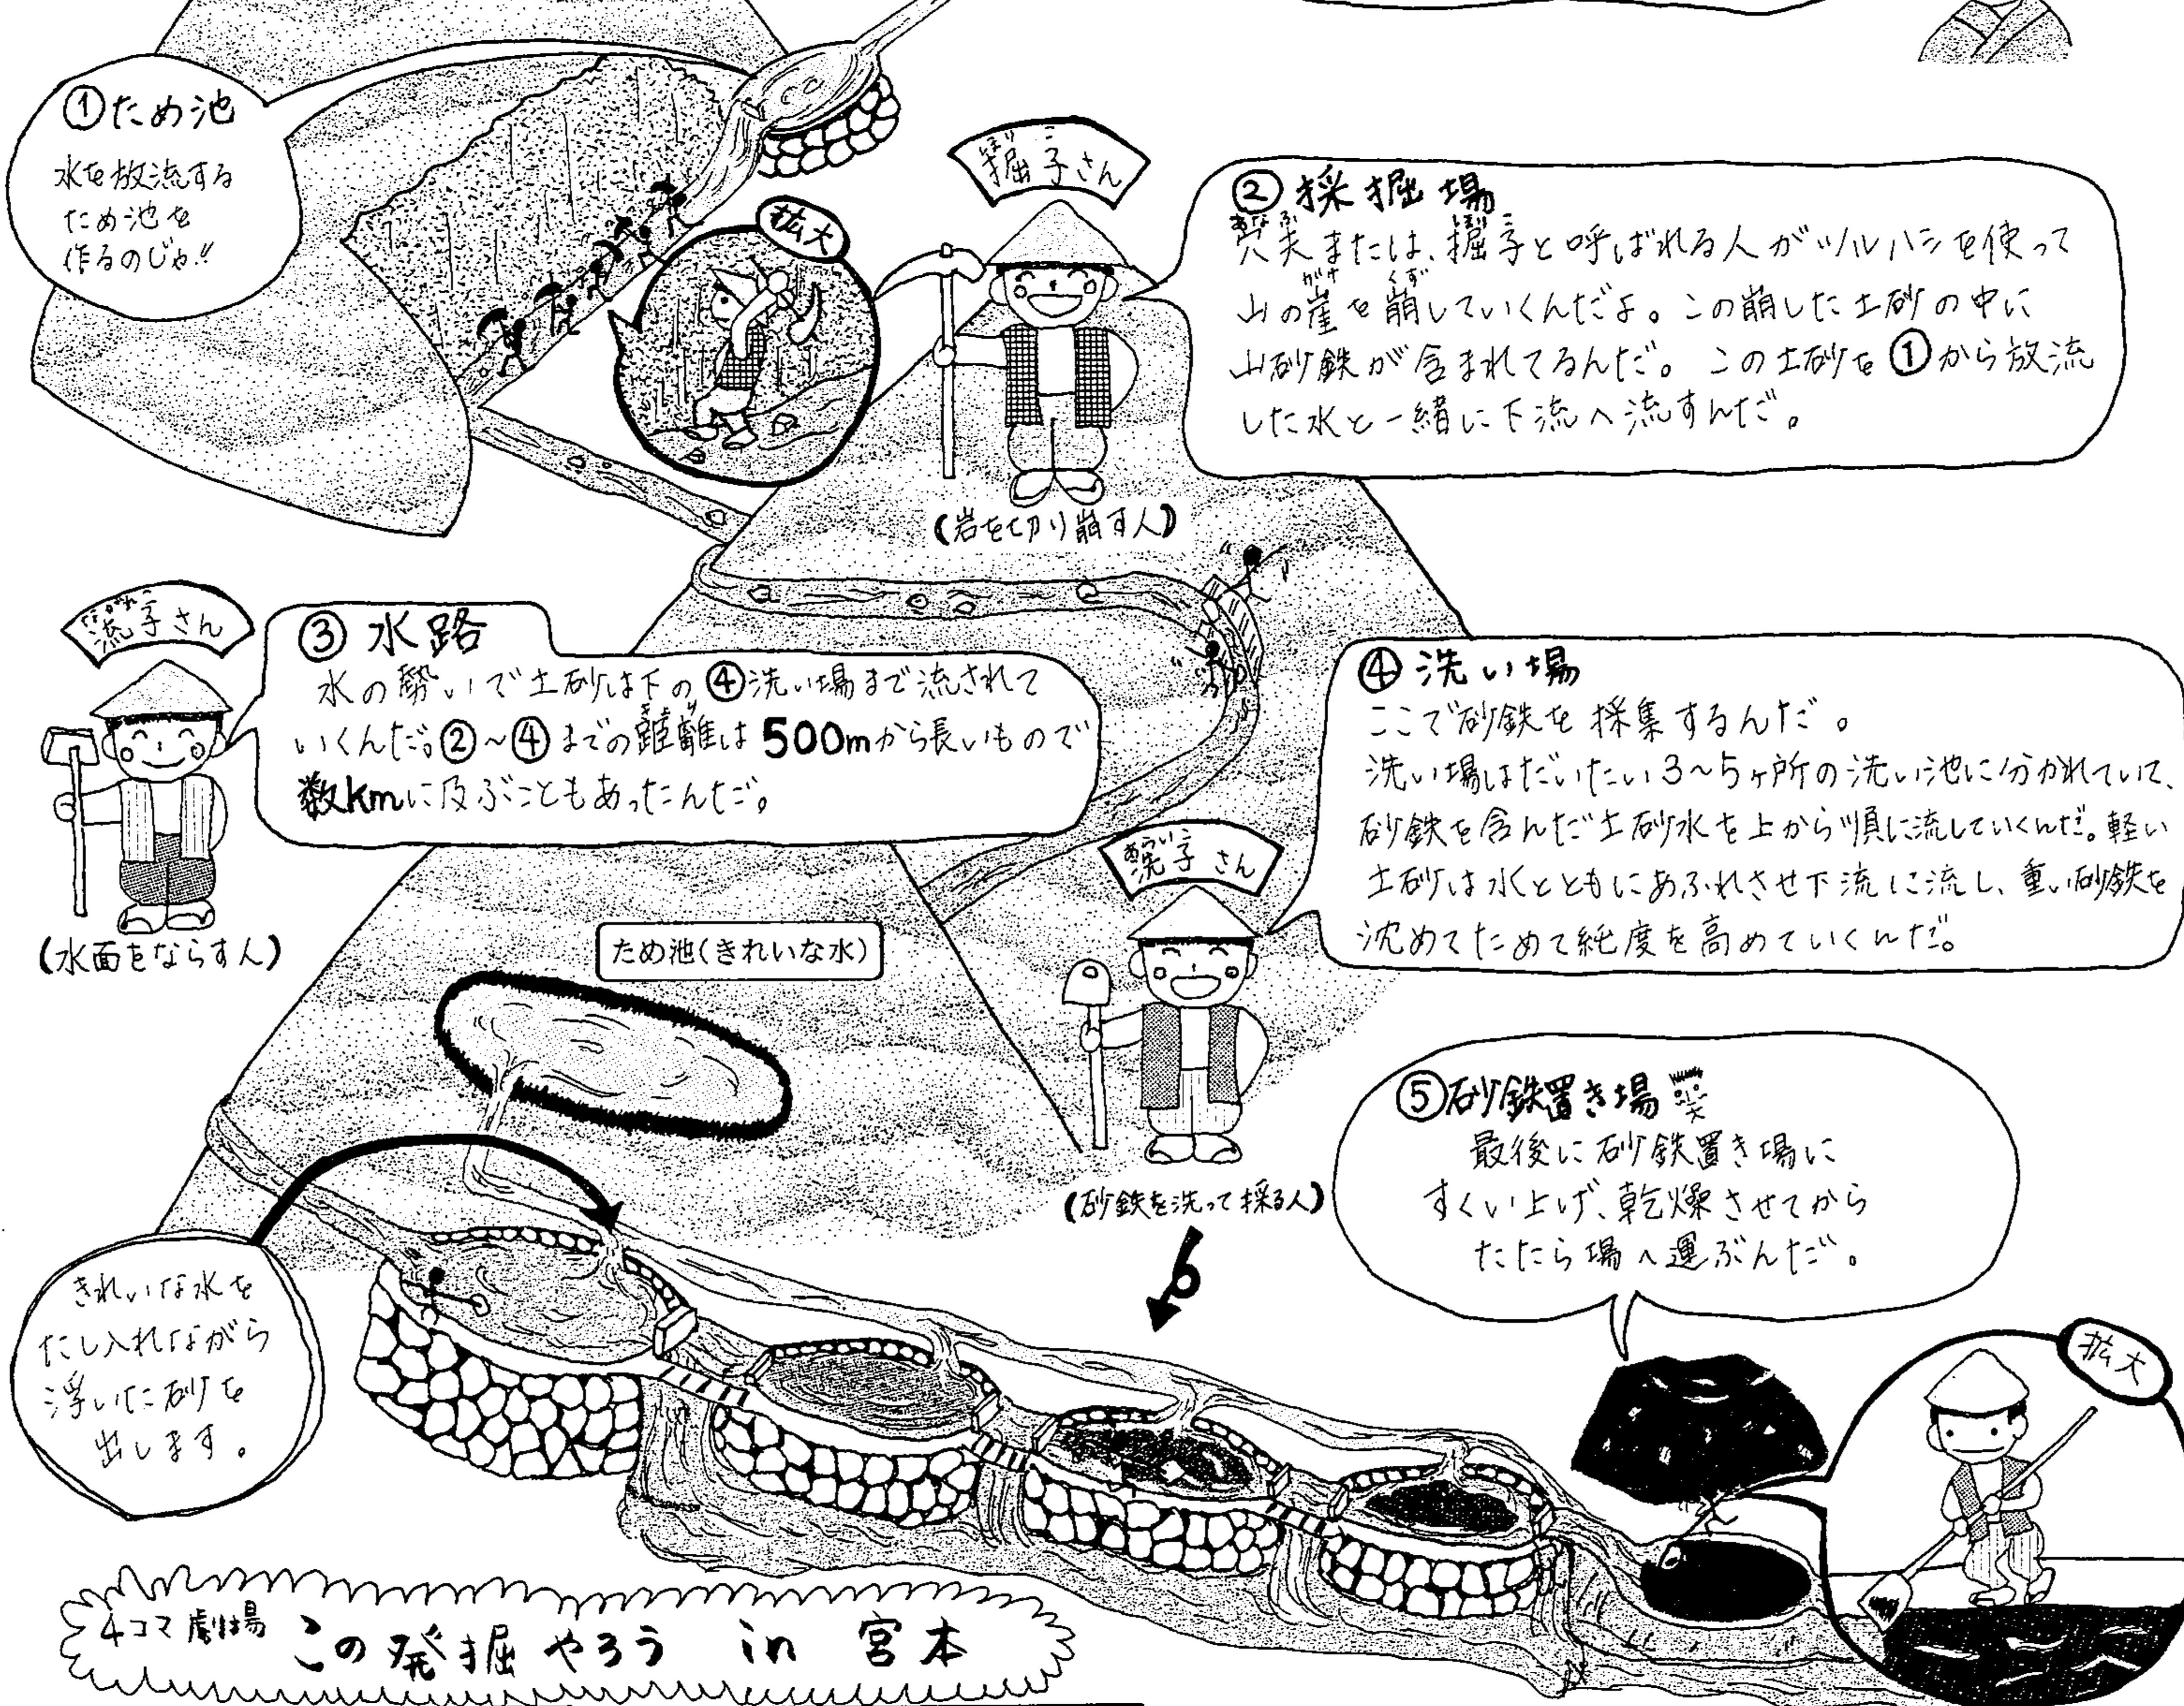 ①ため池
水を放流する
ため池を
作るのじゃ!!
掘子さん
ほり こ
拡大
②採掘場
あなふ ほりこ
穴夫または、掘子と呼ばれる人がツルハシを使って
がけ くず
山の崖を崩していくんだよ。この崩した土砂の中に
山砂鉄が含まれてるんだ。この土砂を①から放流
した水と一緒に下流へ流すんだ。
(岩を切り崩す人)
ながれこ
流子さん
③水路
水の勢いで土砂は下の④洗い場まで流されて
きょり
いくんだ。②～④までの距離は500mから長いもので
数kmに及ぶこともあったんだ。
(水面をならす人)
④洗い場
ここで砂鉄を採集するんだ。
洗い場はだいたい3～5ヶ所の洗い池に分かれていて、
砂鉄を含んだ土砂水を上から順に流していくんだ。軽い
土砂は水とともにあふれさせ下流に流し、重い砂鉄を
沈めてためて純度を高めていくんだ。
あらいこ
洗子さん
(砂鉄を洗って採る人)
ため池(きれいな水)
⑤砂鉄置き場
最後に砂鉄置き場に
すくい上げ、乾燥させてから
たたら場へ運ぶんだ。
きれいな水を
たし入れながら
浮いた砂を
出します。
拡大
4コマ劇場 この発掘やろう in 宮本